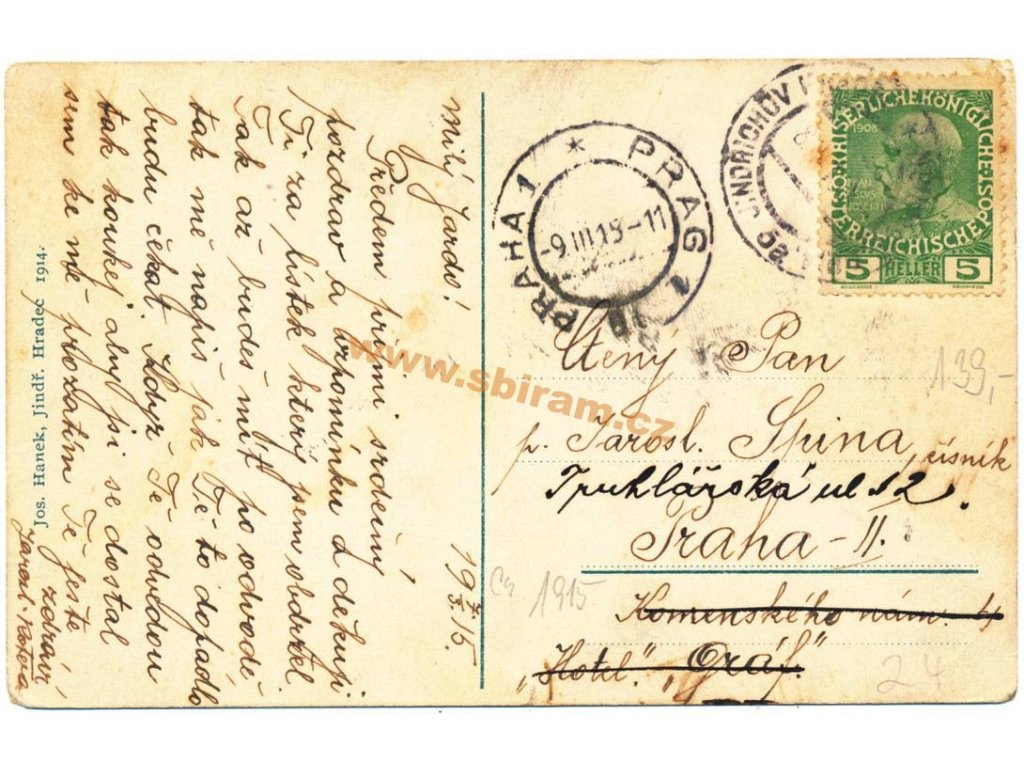 Jos. Hanek, Jindř. Hradec 1914.
19 7/3 15.
Milý Jardo!
Předem přijmi srdečný
pozdrav a vzpomínku a děkuji
Ti za lístek který jsem obdržel.
Tak až budeš mít po odvodě
tak mě napiš jak Tě to dopadlo
budu čekat. Když Tě odvedou
tak koukej abys jsi se dostal
sem ke mě - prozatím Tě ještě
zdraví
Jarosl.
PRAHA 1 * PRAG 1
-9.III.15-11
JINDŘICHŮV
1908
KAISERLICHE KÖNIGLICHE
ÖSTERREICHISCHE POST
5 HELLER 5
Ctěný Pan
p. Jarosl. Spina, číšník
Truhlářská ul 12.
Praha - II.
Komenského nám.
"Hotel." "Gráf"
139,-
1915
24
www.sbiram.cz